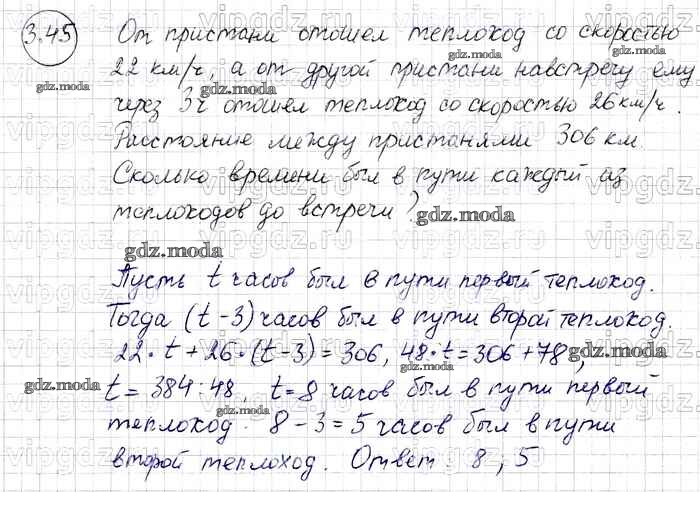 3.45 От пристани отошел теплоход со скоростью
22 км/ч, а от другой пристани навстречу ему
через 3ч отошел теплоход со скоростью 26км/ч.
Расстояние между пристанями 306 км.
Сколько времени был в пути каждый из
теплоходов до встречи?
Пусть t часов был в пути первый теплоход.
Тогда (t-3) часов был в пути второй теплоход.
22·t+26·(t-3)=306, 48·t=306+78,
t=384:48, t=8 часов был в пути первый
теплоход. 8-3=5 часов был в пути
второй теплоход. Ответ: 8, 5